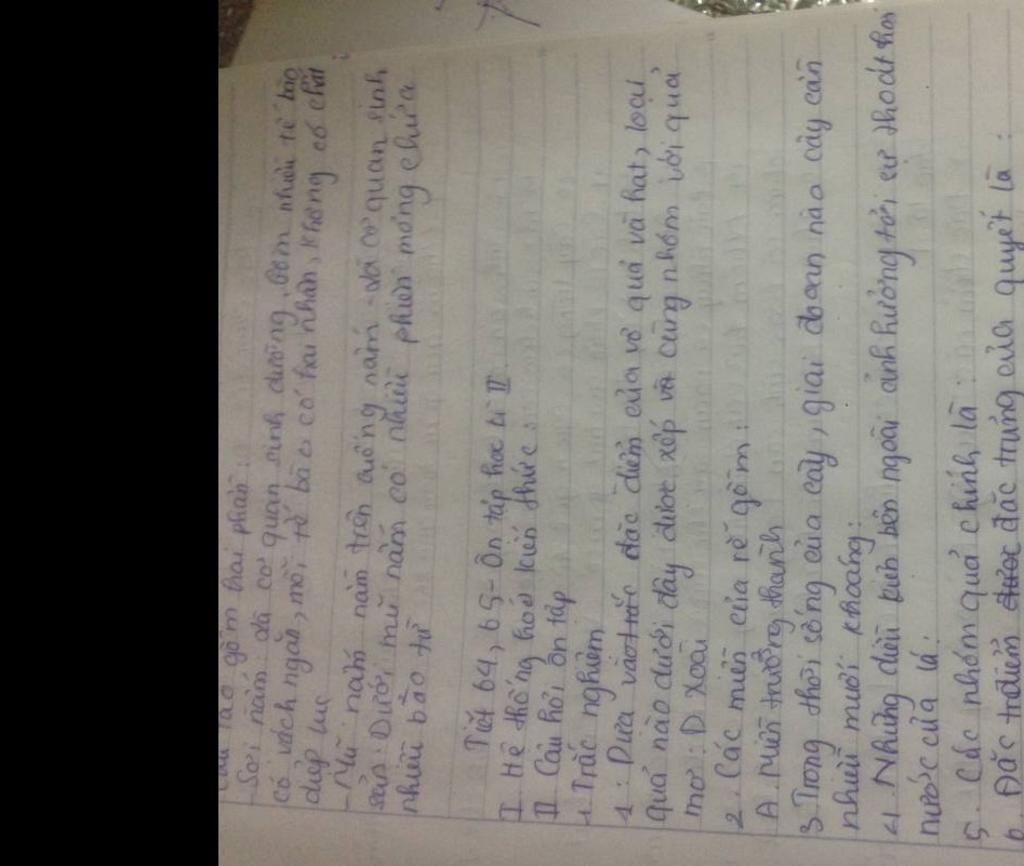 Cấu tạo gồm hai phần:
- Sợi nấm: là cơ quan sinh dưỡng, gồm nhiều tế bào
có vách ngăn, mỗi tế bào có hai nhân, không có chất
diệp lục
- Mũ nấm nằm trên cuống nấm - là cơ quan sinh
sản. Dưới mũ nấm có nhiều phiến mỏng chứa
nhiều bào tử
Tiết 64, 65 - Ôn tập học kì II
I Hệ thống hoá kiến thức:
II Câu hỏi ôn tập
1 Trắc nghiệm
1: Dựa vào đặc điểm của vỏ quả và hạt, loại
quả nào dưới đây được xếp cùng nhóm với quả
mơ: D Xoài
2. Các miền của rễ gồm:
A. Miền trưởng thành
3 Trong thời sống của cây, giai đoạn nào cây cần
nhiều muối khoáng:
4 Những điều kiện bên ngoài ảnh hưởng tới sự thoát hơi
nước của lá.
5. Các nhóm quả chính là:
6. Đặc điểm đặc trưng của quyết là: